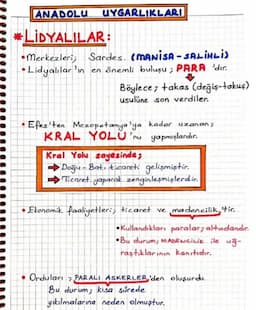 ANADOLU UYGARLIKLARI
* LİDYALILAR:
• Merkezleri; Sardes. (MANİSA-SALİHLİ)
• Lidyalılar'ın en önemli buluşu; PARA 'dır.
Böylece; takas (değiş-tokuş)
usulüne son verdiler.
• Efes'ten Mezopotamya'ya kadar uzanan;
KRAL YOLU'nu yapmışlardır.
Kral Yolu sayesinde;
→ Doğu-Batı ticareti gelişmiştir.
→ Ticaret yaparak zenginleşmişlerdir.
• Ekonomik faaliyetleri; ticaret ve madencilik'tir.
• Kullandıkları paralar; altındandır.
• Bu durum; MADENCİLİK ile uğ-
raştıklarının kanıtıdır.
• Orduları; PARALI ASKERLER'den oluşurdu.
Bu durum; kısa sürede
yıkılmalarına neden olmuştur.